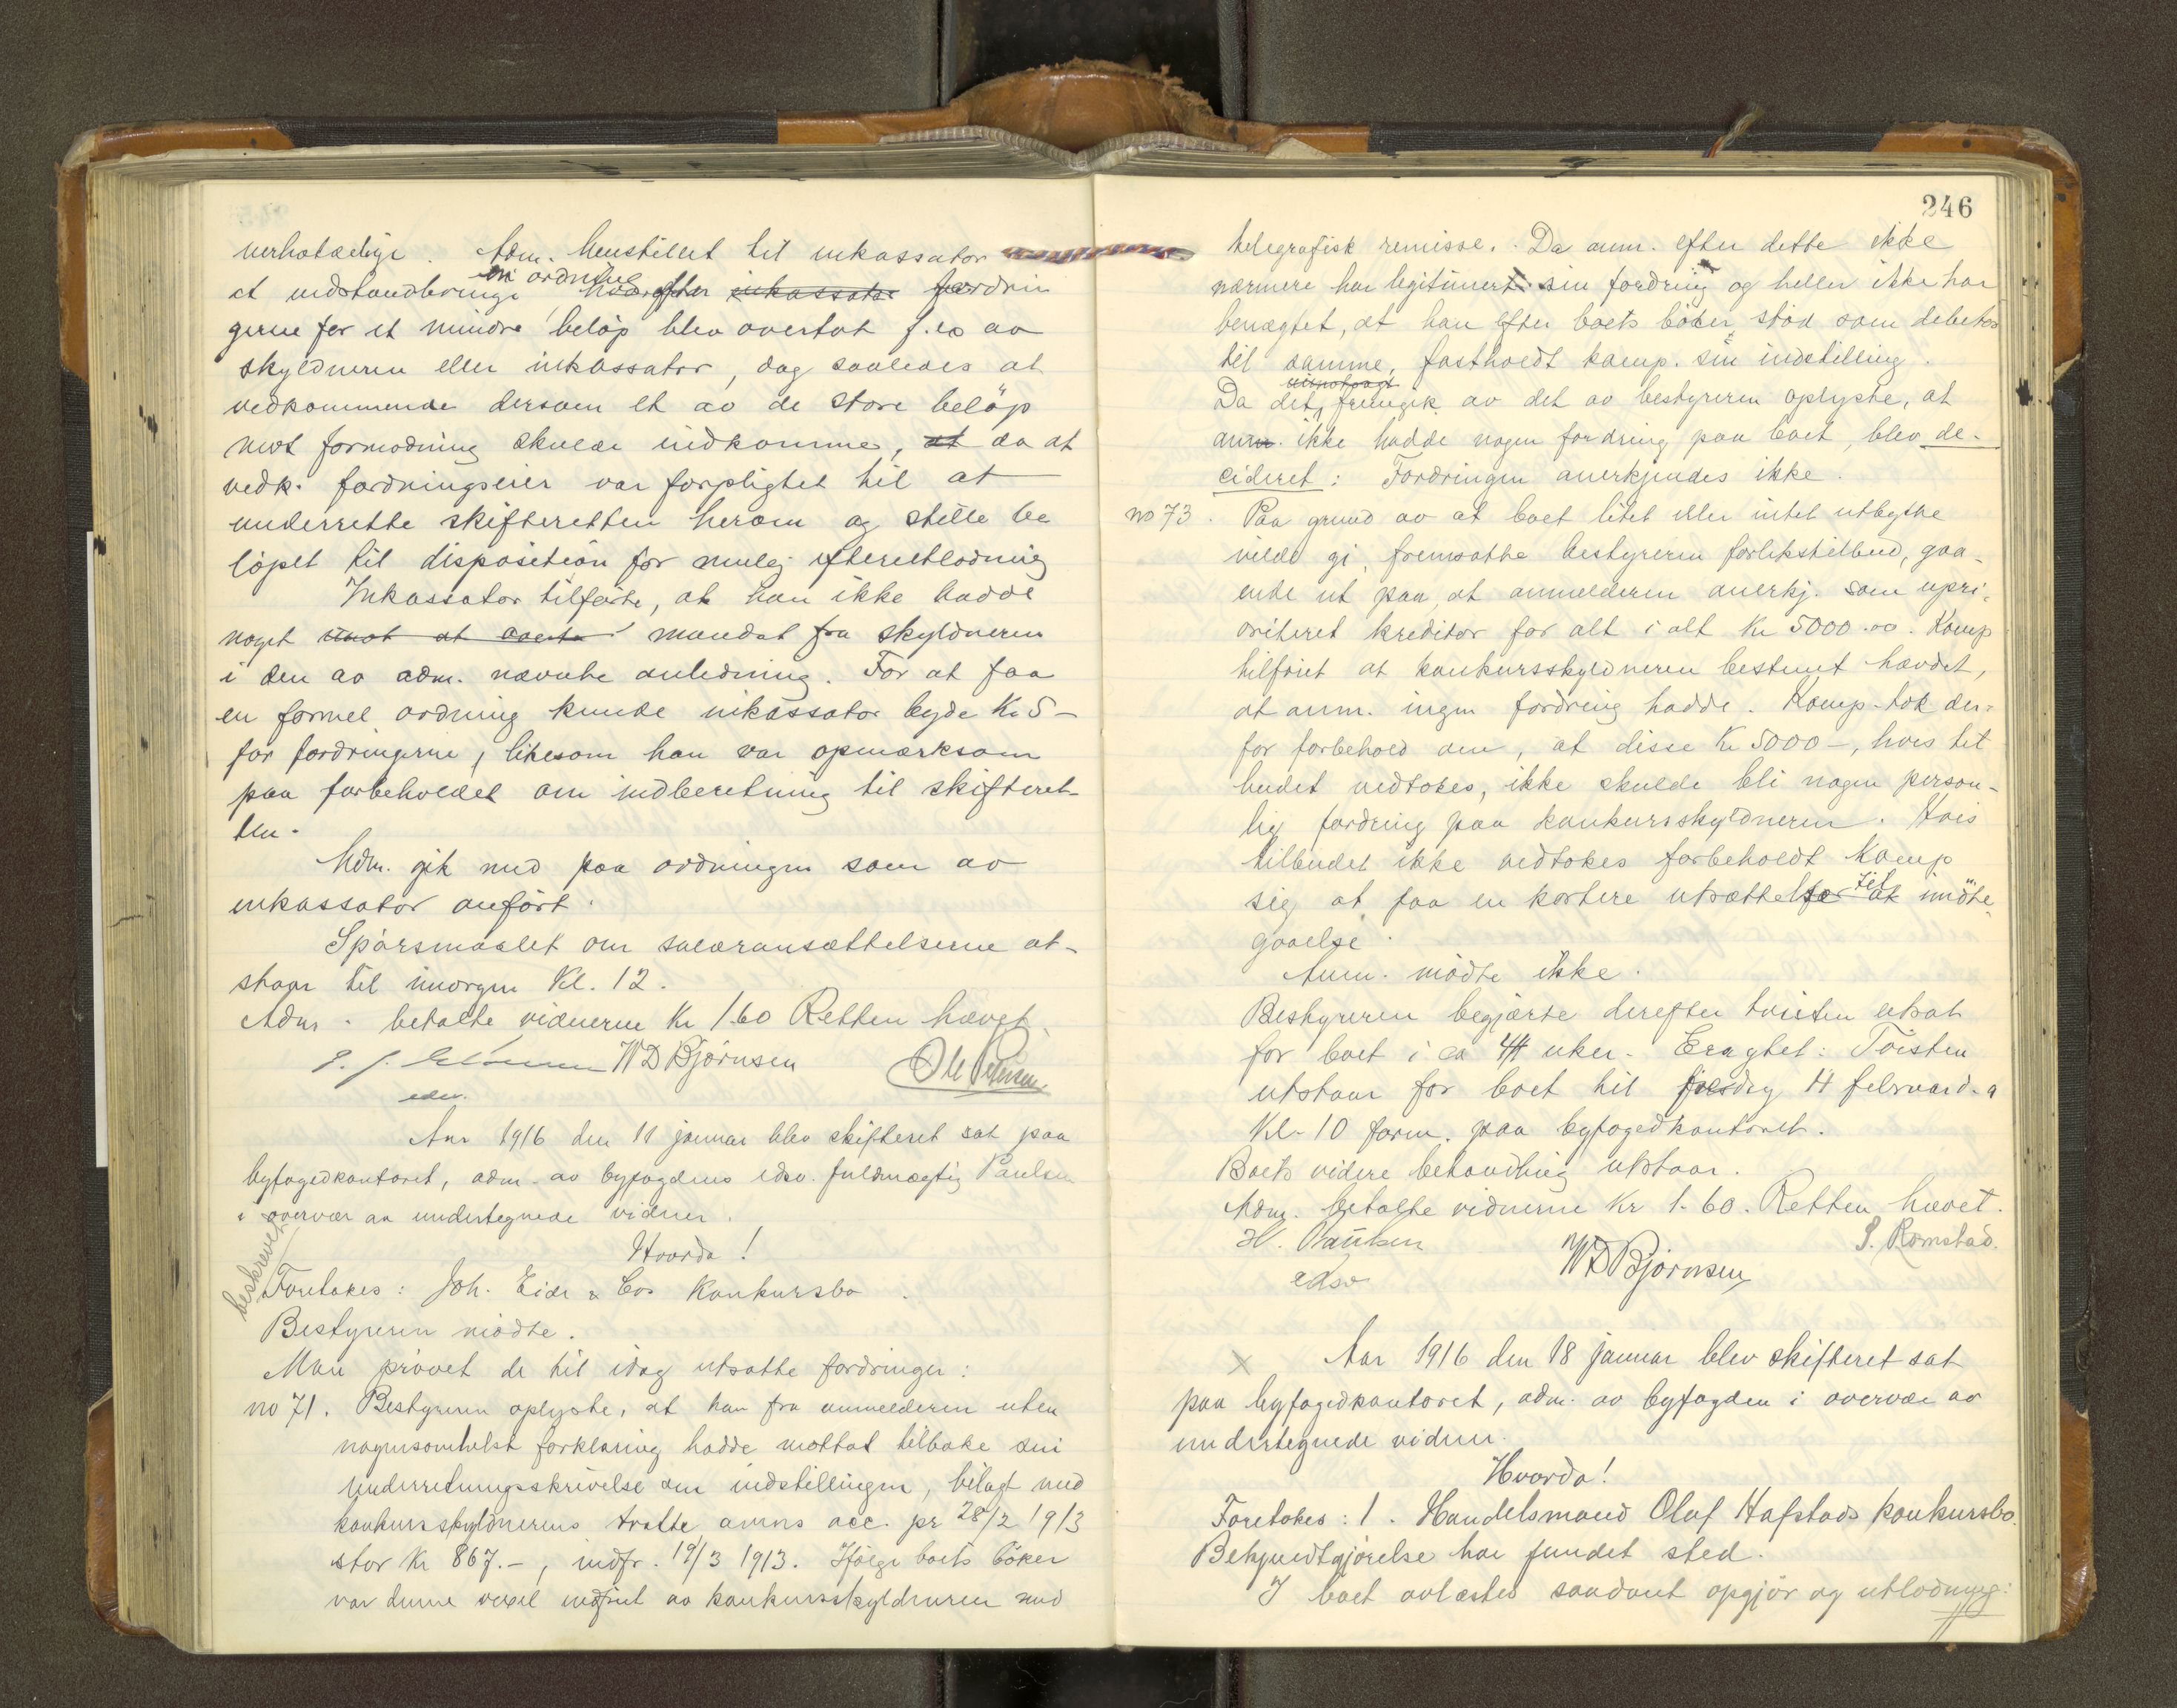 uerholdelige. Adm. henstillet til inkassator
en ordning
at istandbringe hvorefter inkassator fordrin
gerne for et mindre beløp blev overtat f. ex av
skyldneren eller inkassator, dog saaledes at
vedkommende dersom et av de store beløp
mot formodning skulde indkomme, at da at
vedk. fordringseier var forpligtet til at
underrette skifteretten herom og stille be
løpet til disposition for mulig efterutlodning
Inkassator tilførte, at han ikke hadde
noget imot at overta mandat fra skyldneren
i den av adm. nævnte anledning. For at faa
en formel ordning kunde inkassator byde Kr 5-
for fordringerne, likesom han var opmerksom
paa forbeholdet om indberetning til skifteret-
ten.
Adm. gik med paa ordningen som av
inkassator anført.
Spørsmaalet om salæransættelserne ut-
staar til imorgen Kl. 12.
Adm. betalte vidnerne Kr 1.60 Retten hævet.
WD Bjørnsen
edsv.
Aar 1916 den 11 januar blev skifteret sat paa
byfogedkontoret, adm. av byfogdens edsv. fuldmægtig Paulsen
i overvær av undertegnede vidner.
Hvorda!
beskrevet
Foretokes: Joh. Eide & Cos Konkursbo.
Bestyreren mødte.
Man prøvet de til idag utsatte fordringer:
no 71. Bestyreren oplyste, at han fra anmelderen uten
nogensomhelst forklaring hadde mottat tilbake sin
underretningsskrivelse om indstillingen, bilagt med
konkursskyldnerens tratte anms acc. pr 28/2 1913
stor Kr 867.-, indfr. 19/3 1913. Ifølge boets bøker
var denne vexel indfriet av konkursskyldneren med
246
telegrafisk remisse. Da anm. efter dette ikke
nærmere har legitimert sin fordring og heller ikke har
benægtet, at han efter boets bøker stod som debitor
til samme, fastholdt komp. sin indstilling.
Da det fremgik av det av bestyreren oplyste, at
anm. ikke hadde nogen fordring paa boet, blev de-
cideret: Fordringen anerkjendes ikke.
no 73. Paa grund av at boet litet eller intet utbytte
vilde gi, fremsatte bestyreren forlikstilbud, gaa-
ende ut paa, at anmelderen anerkj. som upri-
oriteret kreditor for alt i alt Kr 5000.00. Komp
tilføiet at konkursskyldneren bestemt hævdet,
at anm. ingen fordring hadde. Komp. tok der-
for forbehold om, at disse Kr 5000-, hvis til
budet vedtokes, ikke skulde bli nogen person-
lig fordring paa konkursskyldneren. Hvis
tilbudet ikke vedtokes forbeholdt komp
sig at faa en kortere utsættelse til at imøte
gaaelse.
Anm. mødte ikke.
Bestyreren begjærte derefter tvisten utsat
for boet i ca 4 uker. Eragtet: Tvisten
utstaar for boet til fredag 4 februar d. a
Kl. 10 form. paa byfogedkontoret.
Boets videre behandling utstaar.
Adm. betalte vidnerne Kr 1.60. Retten hævet.
H. Paulsen
edsv
WD Bjørnsen
S. Romstad.
Aar 1916 den 18 januar blev skifteret sat
paa byfogedkontoret, adm. av byfogden i overvær av
undertegnede vidner.
Hvorda!
Foretokes: 1. Handelsmand Olaf Hafstads konkursbo.
Bekjendtgjørelse har fundet sted.
I boet avlæstes saadant opgjør og utlodning: